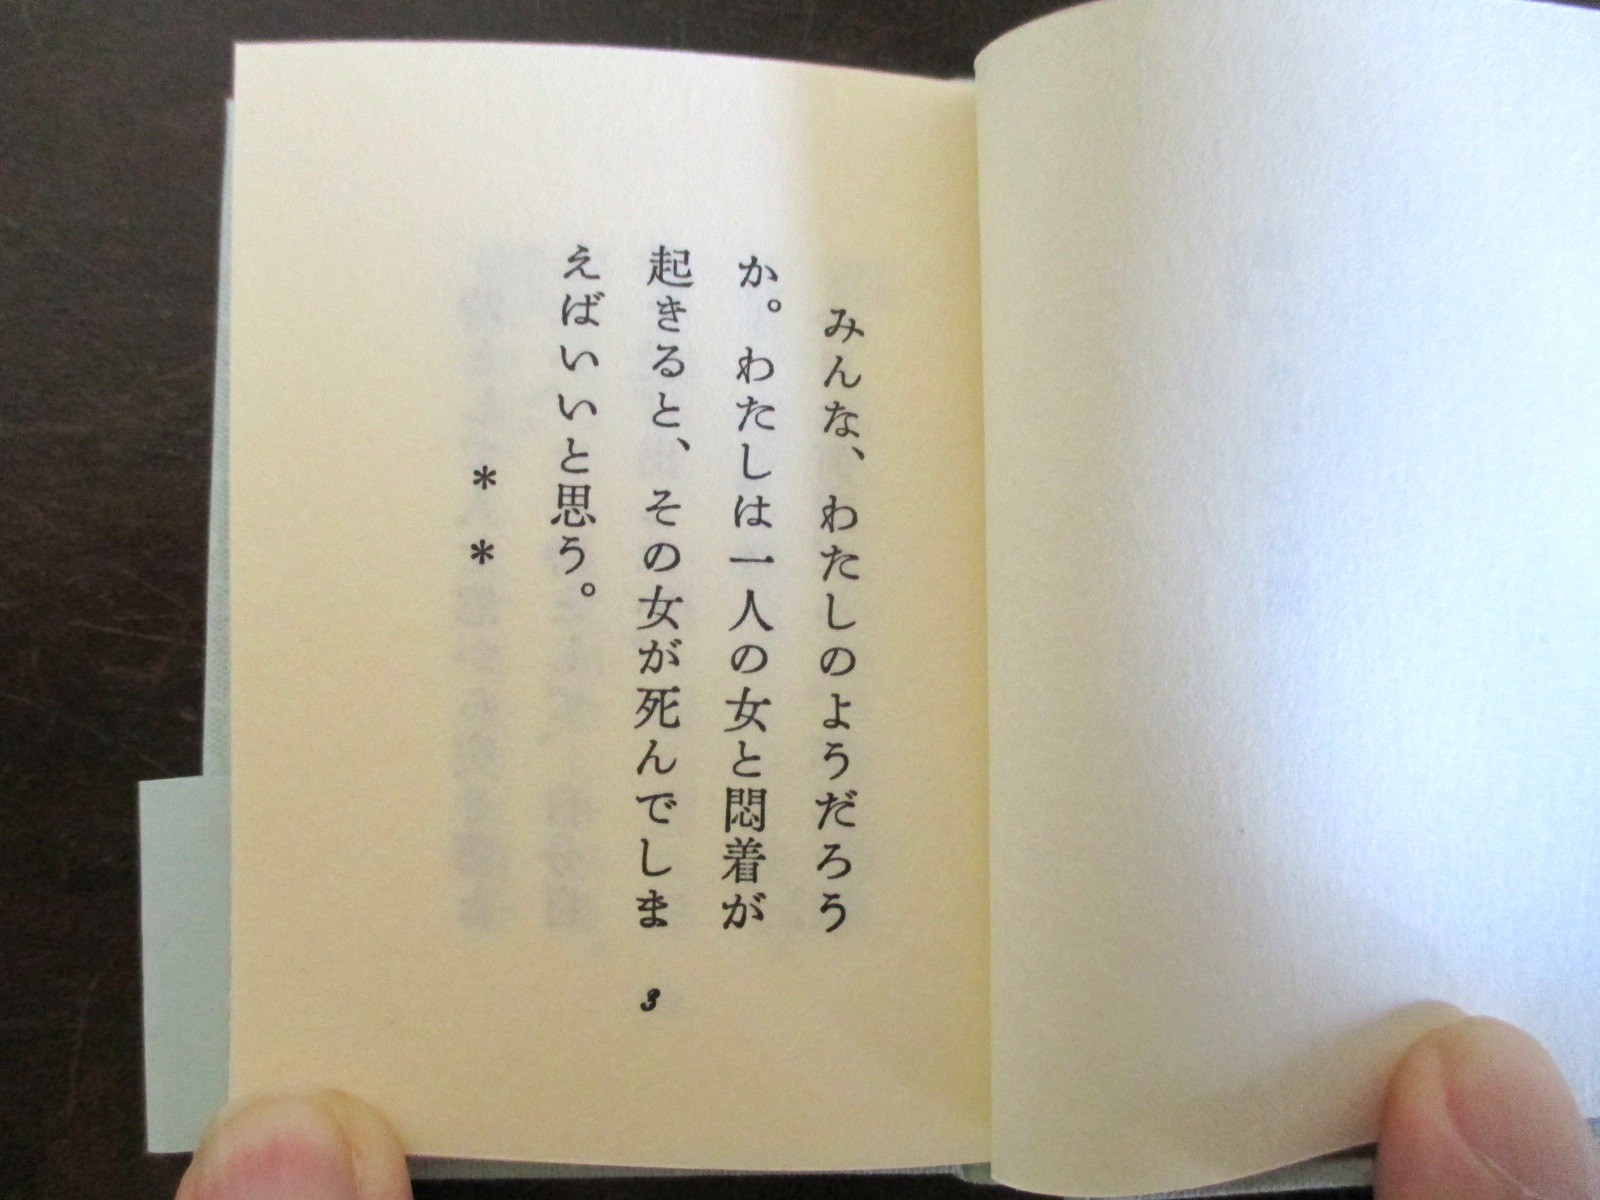 みんな、わたしのようだろう
か。わたしは一人の女と悶着が
起きると、その女が死んでしま
えばいいと思う。
＊＊
3